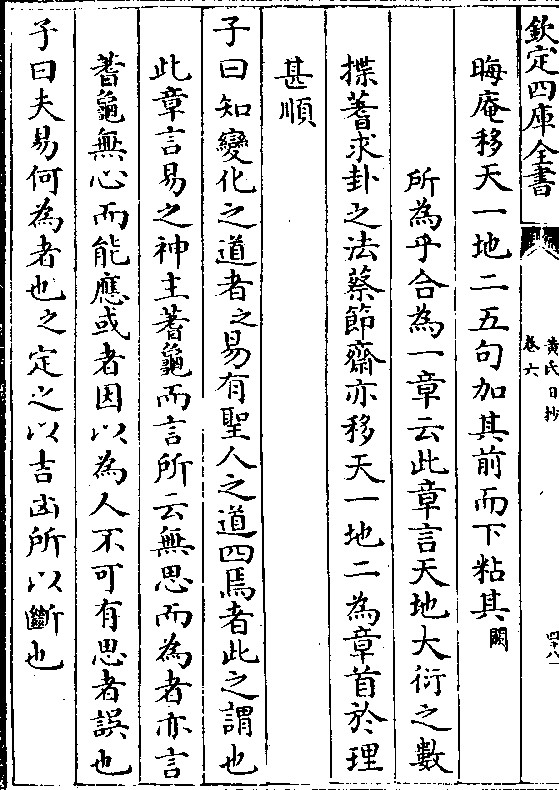 欽定四庫全書
黄氏日抄
卷六
四十八
晦庵移天一地二五句加其前而下粘其闕
所為乎合為一章云此章言天地大衍之數
揲蓍求卦之法蔡節齋亦移天一地二為章首於理
甚順
子曰知變化之道者之易有聖人之道四焉者此之謂也
此章言易之神主蓍龜而言所云無思而為者亦言
蓍龜無心而能應或者因以為人不可有思者誤也
子曰夫易何為者也之定之以吉凶所以斷也